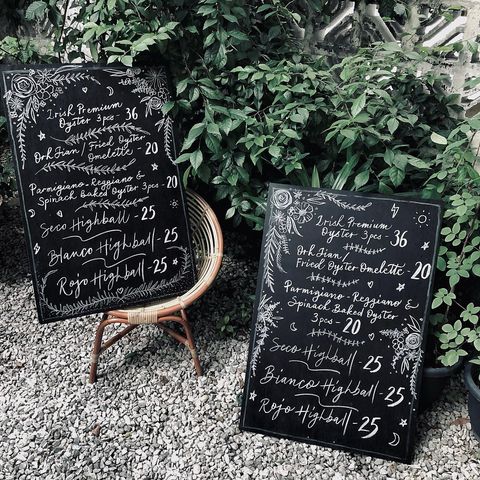 Irish Premium
Oyster 3pcs - 36
Orh Jian / Fried Oyster
Omelette - 20
Parmigiano-Reggiano &
Spinach Baked Oyster 3pcs - 20
Seco Highball - 25
Bianco Highball - 25
Rojo Highball - 25
Irish Premium
Oyster 3pcs - 36
Orh Jian /
Fried Oyster Omelette 20
Parmigiano-Reggiano &
Spinach Baked Oyster
3pcs - 20
Seco Highball - 25
Bianco Highball - 25
Rojo Highball - 25